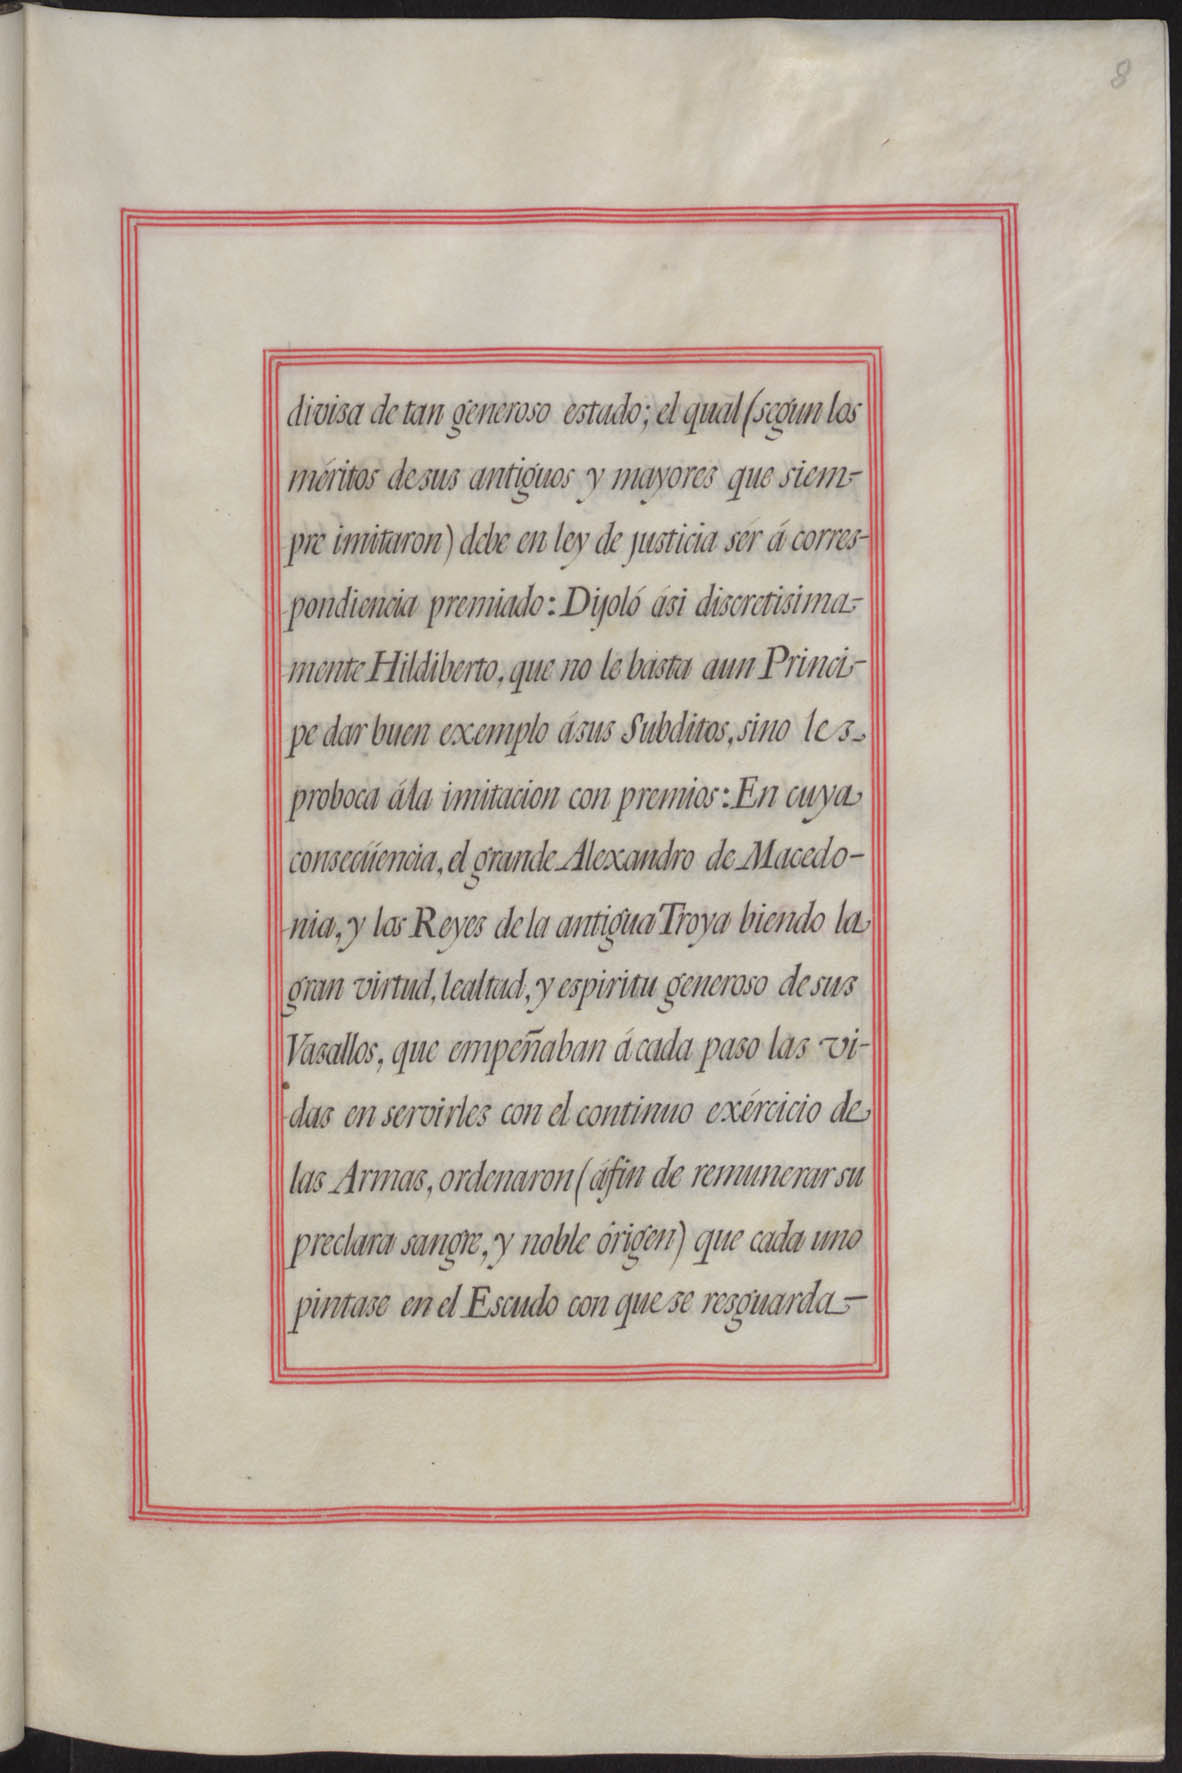 8
divisa de tan generoso estado; el qual (segun los
méritos de sus antiguos y mayores que siem-
pre imitaron) debe en ley de justicia sér á corres-
pondiencia premiado: Dijoló ási discretisima-
mente Hildiberto, que no le basta aun Princi-
pe dar buen exemplo ásus Subditos, sino les
proboca ála imitacion con premios: En cuya
conseqüencia, el grande Alexandro de Macedo-
nia, y los Reyes de la antigua Troya biendo la
gran virtud, lealtad, y espiritu generoso de sus
Vasallos, que empeñaban á cada paso las vi-
das en servirles con el continuo exércicio de
las Armas, ordenaron (áfin de remunerar su
preclara sangre, y noble órigen) que cada uno
pintase en el Escudo con que se resguarda-